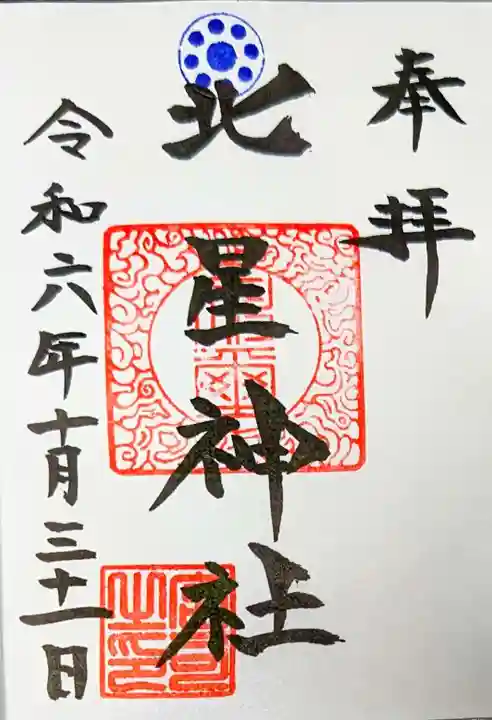 奉拝
北星神社
令和六年十月三十一日